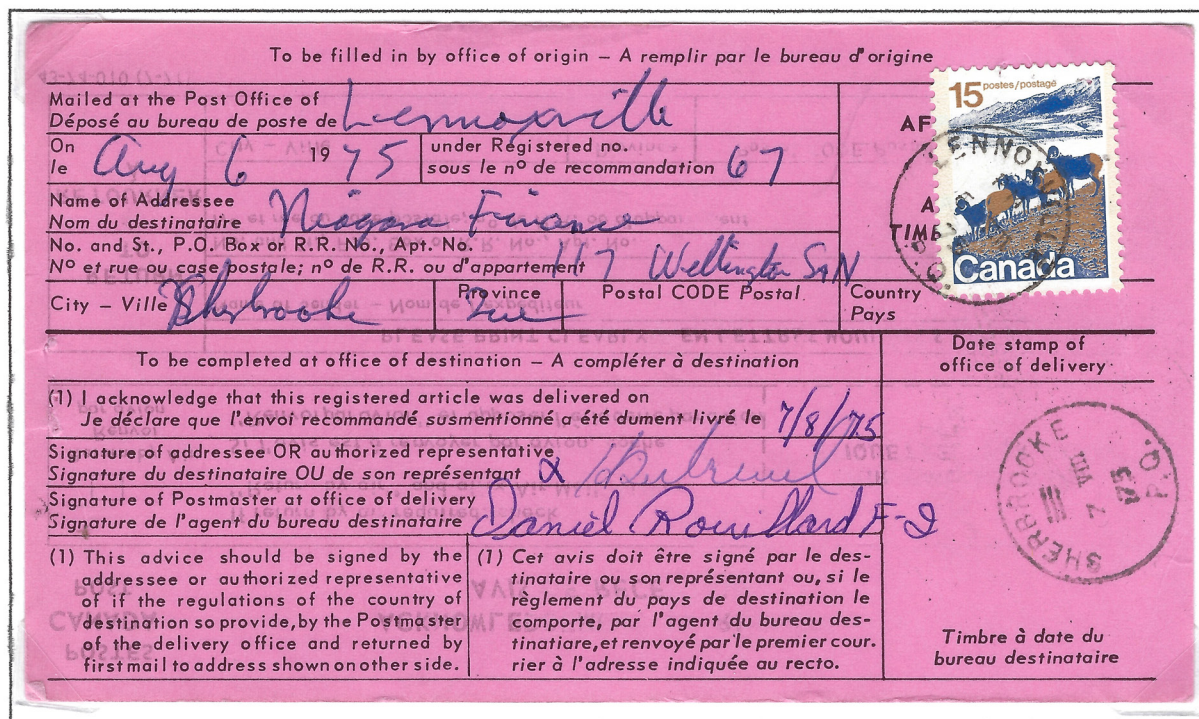 To be filled in by office of origin – A remplir par le bureau d'origine
Mailed at the Post Office of
Déposé au bureau de poste de Lennoxville
AF
15 postes/postage
On
le Aug 6 1975 under Registered no.
sous le nº de recommandation 67
LENNOXVILLE
Name of Addressee
Nom du destinataire Niagara Finance
A
TIMB
No. and St., P.O. Box or R.R. No., Apt. No.
Nº et rue ou case postale; nº de R.R. ou d'appartement 117 Wellington S N
Canada
City – Ville Sherbrooke Province Que Postal CODE Postal Country
Pays
To be completed at office of destination – A compléter à destination
Date stamp of
office of delivery
(1) I acknowledge that this registered article was delivered on
Je déclare que l'envoi recommandé susmentionné a été dument livré le 7/8/75
Signature of addressee OR authorized representative
Signature du destinataire OU de son représentant
Signature of Postmaster at office of delivery
Signature de l'agent du bureau destinataire Daniel Rouillard F-2
SHERBROOKE P.Q.
7 VIII 75
(1) This advice should be signed by the
addressee or authorized representative
of if the regulations of the country of
destination so provide, by the Postmaster
of the delivery office and returned by
first mail to address shown on other side.
(1) Cet avis doit être signé par le des-
tinataire ou son représentant ou, si le
règlement du pays de destination le
comporte, par l'agent du bureau des-
tinatiare, et renvoyé par le premier cour.
rier à l'adresse indiquée au recto.
Timbre à date du
bureau destinataire